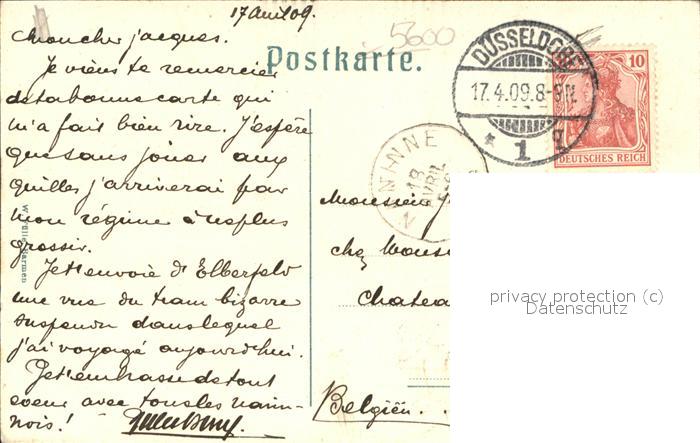 17 Avril 09.
5600
Mon cher jacques.
Postkarte.
Je viens te remercier
de ta bonne carte qui
m'a fait bien rire. J'espère
que sans jouer aux
quilles j'arriverai par
mon régime à ne plus
grossir.
Je t'envoie d'Elberfeld
une vue du tram bizarre
suspendu dans lequel
j'ai voyagé aujourd'hui.
Je t'embrasse de tout
coeur avec tous les
nois!
DÜSSELDORF
17.4.09.8-9N.
* 1 q
10
DEUTSCHES REICH
NINNE
18
AVRIL
Monsieur
chez
Chatea
Belgien.
privacy protection (c)
Datenschutz